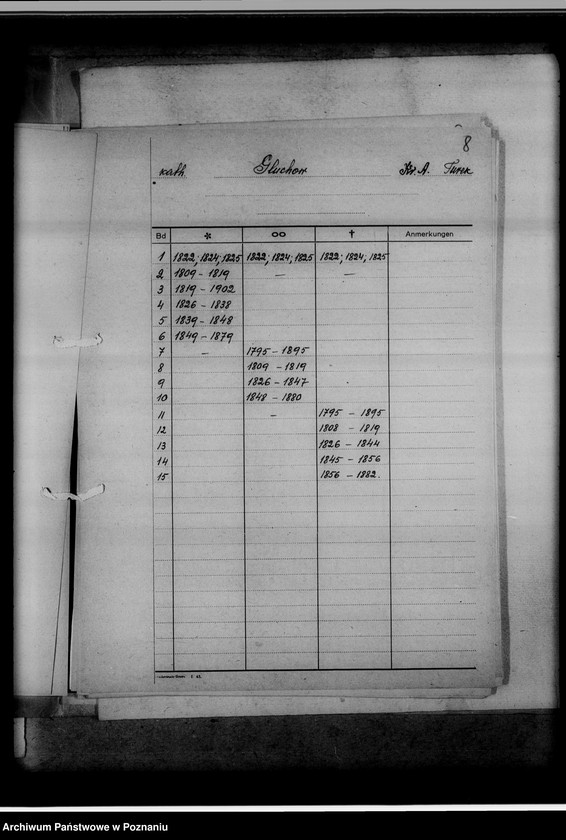 8
kath. Gluchow Kr. A. Turek
Bd * ∞ † Anmerkungen
1 1822; 1824; 1825 1822; 1824; 1825 1822; 1824; 1825
2 1809 - 1819 — —
3 1819 - 1902
4 1826 - 1838
5 1839 - 1848
6 1849 - 1879
7 — 1795 - 1895
8 1809 - 1819
9 1826 - 1847
10 1848 - 1880
11 — 1795 - 1895
12 1808 - 1819
13 1826 - 1844
14 1845 - 1856
15 1856 - 1882.
Archiwum Państwowe w Poznaniu